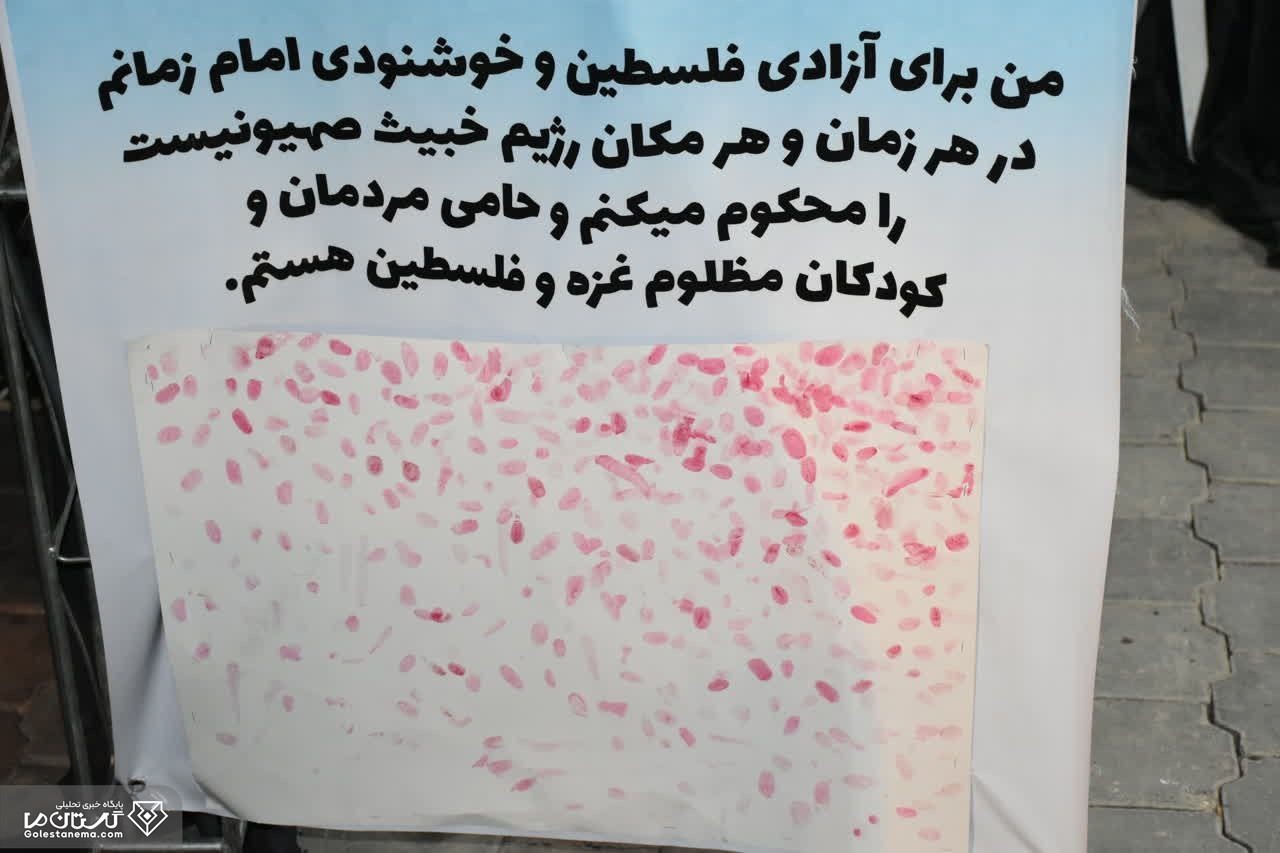 من برای آزادی فلسطین و خوشنودی امام زمانم
در هر زمان و هر مکان رژیم خبیث صهیونیست
را محکوم میکنم و حامی مردمان و
کودکان مظلوم غزه و فلسطین هستم.
پایگاه خبری تحلیلی
گلستان ما
Golestanema.com